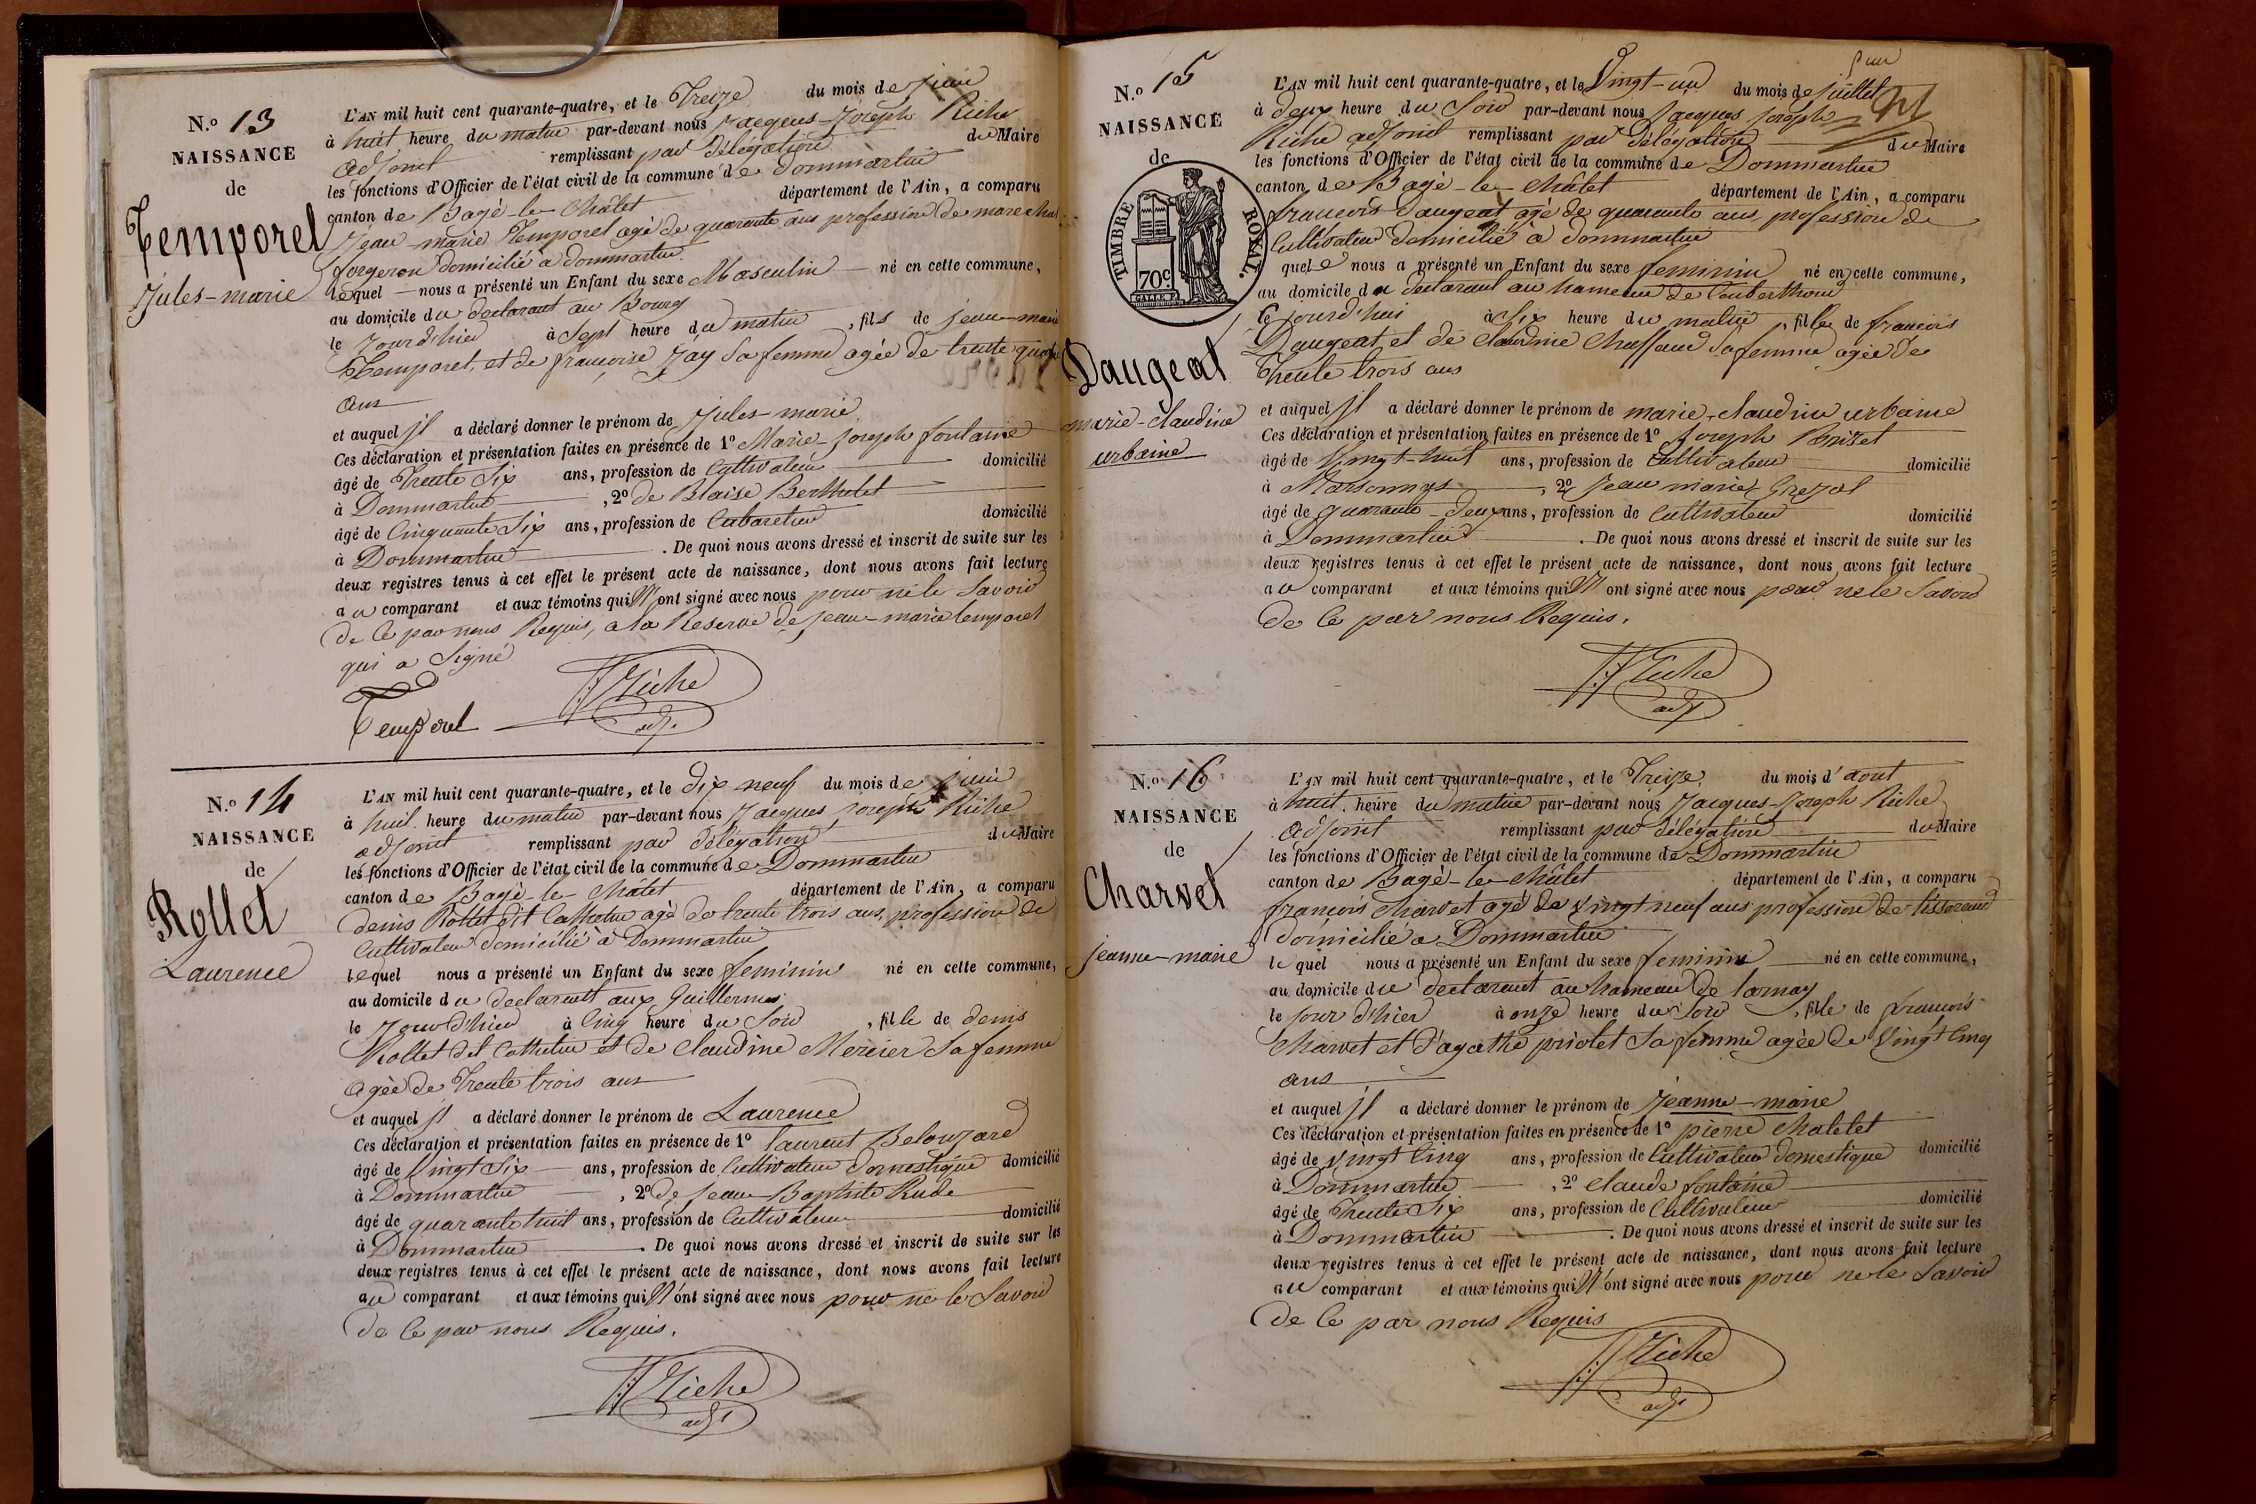 N.º 13
NAISSANCE
de
Temporel
Jules-marie
L'AN mil huit cent quarante-quatre, et le Treize du mois de juin
à huit heure du matin par-devant nous Jacques-Joseph Riche
adjoint remplissant par délégation du Maire
les fonctions d'Officier de l'état civil de la commune de Dommartin
canton de Bagé-le-Châtel département de l'Ain, a comparu
Jean-marie Temporel agé de quarante ans profession de marechal
forgeron domicilié à dommartin
lequel nous a présenté un Enfant du sexe Masculin né en cette commune,
au domicile du déclarant au Bourg
le jour d'hier à Sept heure du matin, fils de jean-marie
Temporel, et de françoise Jay Sa femme agée de trente quatre
ans
et auquel il a déclaré donner le prénom de Jules-marie
Ces déclaration et présentation faites en présence de 1º Marie-Joseph fontaine
âgé de Trente Six ans, profession de Cultivateur domicilié
à Dommartin, 2º de Blaise Berthelet
âgé de Cinquante Six ans, profession de Cabaretier domicilié
à Dommartin. De quoi nous avons dressé et inscrit de suite sur les
deux registres tenus à cet effet le présent acte de naissance, dont nous avons fait lecture
au comparant et aux témoins qui N'ont signé avec nous pour ne le Savoir
de Ce par nous Requis, a la Reserve de jean-marie temporel
qui a Signé
Temporel
JJRiche
adj.
N.º 14
NAISSANCE
de
Rollet
Laurence
L'AN mil huit cent quarante-quatre, et le dix neuf du mois de juin
à huit heure du matin par-devant nous Jacques joseph Riche
adjoint remplissant par délégation du Maire
les fonctions d'Officier de l'état civil de la commune de Dommartin
canton de Bagé-le-Châtel département de l'Ain, a comparu
denis Rollet dit Cathelin agé de trente trois ans, profession de
Cultivateur domicilié à Dommartin
lequel nous a présenté un Enfant du sexe feminin né en cette commune,
au domicile du déclarant aux Guillermes
le Jour d'hier à Cinq heure du Soir, fille de denis
Rollet dit Cathelin et de Claudine Mercier Sa femme
agée de Trente trois ans
et auquel il a déclaré donner le prénom de Laurence
Ces déclaration et présentation faites en présence de 1º laurent Belouzard
âgé de Vingt Six ans, profession de Cultivateur domestique domicilié
à Dommartin, 2º de Jean-Baptiste Rude
âgé de quarante huit ans, profession de Cultivateur domicilié
à Dommartin. De quoi nous avons dressé et inscrit de suite sur les
deux registres tenus à cet effet le présent acte de naissance, dont nous avons fait lecture
au comparant et aux témoins qui N'ont signé avec nous pour ne le Savoir
de Ce par nous Requis.
JJRiche
adjt
N.º 15
NAISSANCE
de
TIMBRE ROYAL.
70c
Daugeat
marie-Claudine
urbaine
L'AN mil huit cent quarante-quatre, et le Vingt-un du mois de juillet
à deux heure du Soir par-devant nous Jacques joseph
Riche adjoint remplissant par délégation du Maire
les fonctions d'Officier de l'état civil de la commune de Dommartin
canton de Bagé-le-Châtel département de l'Ain, a comparu
françois Daugeat agé de quarante ans, profession de
Cultivateur domicilié à dommartin
quel nous a présenté un Enfant du sexe feminin né en cette commune,
au domicile du déclarant au hameau de
le jourd'hui à Six heure du matin, fille de françois
Daugeat et de Claudine Chaffaud Sa femme agée de
Trente trois ans
et auquel il a déclaré donner le prénom de marie-Claudine urbaine
Ces déclaration et présentation faites en présence de 1º Joseph
âgé de Vingt-huit ans, profession de Cultivateur domicilié
à Marsonnas, 2º Jean marie
âgé de quarante-deux ans, profession de Cultivateur domicilié
à Dommartin. De quoi nous avons dressé et inscrit de suite sur les
deux registres tenus à cet effet le présent acte de naissance, dont nous avons fait lecture
au comparant et aux témoins qui N'ont signé avec nous pour ne le Savoir
de Ce par nous Requis.
JJRiche
adjt
N.º 16
NAISSANCE
de
Charvet
jeanne-marie
L'AN mil huit cent quarante-quatre, et le Treize du mois d'aout
à huit heure du matin par-devant nous Jacques-Joseph Riche
adjoint remplissant par délégation du Maire
les fonctions d'Officier de l'état civil de la commune de Dommartin
canton de Bagé-le-Châtel département de l'Ain, a comparu
françois Charvet agé de Vingt neuf ans profession de tisserand
domicilié a Dommartin
le quel nous a présenté un Enfant du sexe feminin né en cette commune,
au domicile du déclarant au hameau de lornay
le jour d'hier à onze heure du Soir, fille de françois
Charvet et d'agathe priolet Sa femme agée de Vingt Cinq
ans
et auquel il a déclaré donner le prénom de Jeanne-marie
Ces déclaration et présentation faites en présence de 1º pierre Chatelet
âgé de Vingt Cinq ans, profession de Cultivateur domestique domicilié
à Dommartin, 2º Claude fontaine
âgé de Trente Six ans, profession de Cultivateur domicilié
à Dommartin. De quoi nous avons dressé et inscrit de suite sur les
deux registres tenus à cet effet le présent acte de naissance, dont nous avons fait lecture
au comparant et aux témoins qui N'ont signé avec nous pour ne le Savoir
de Ce par nous Requis
JJRiche
adjt